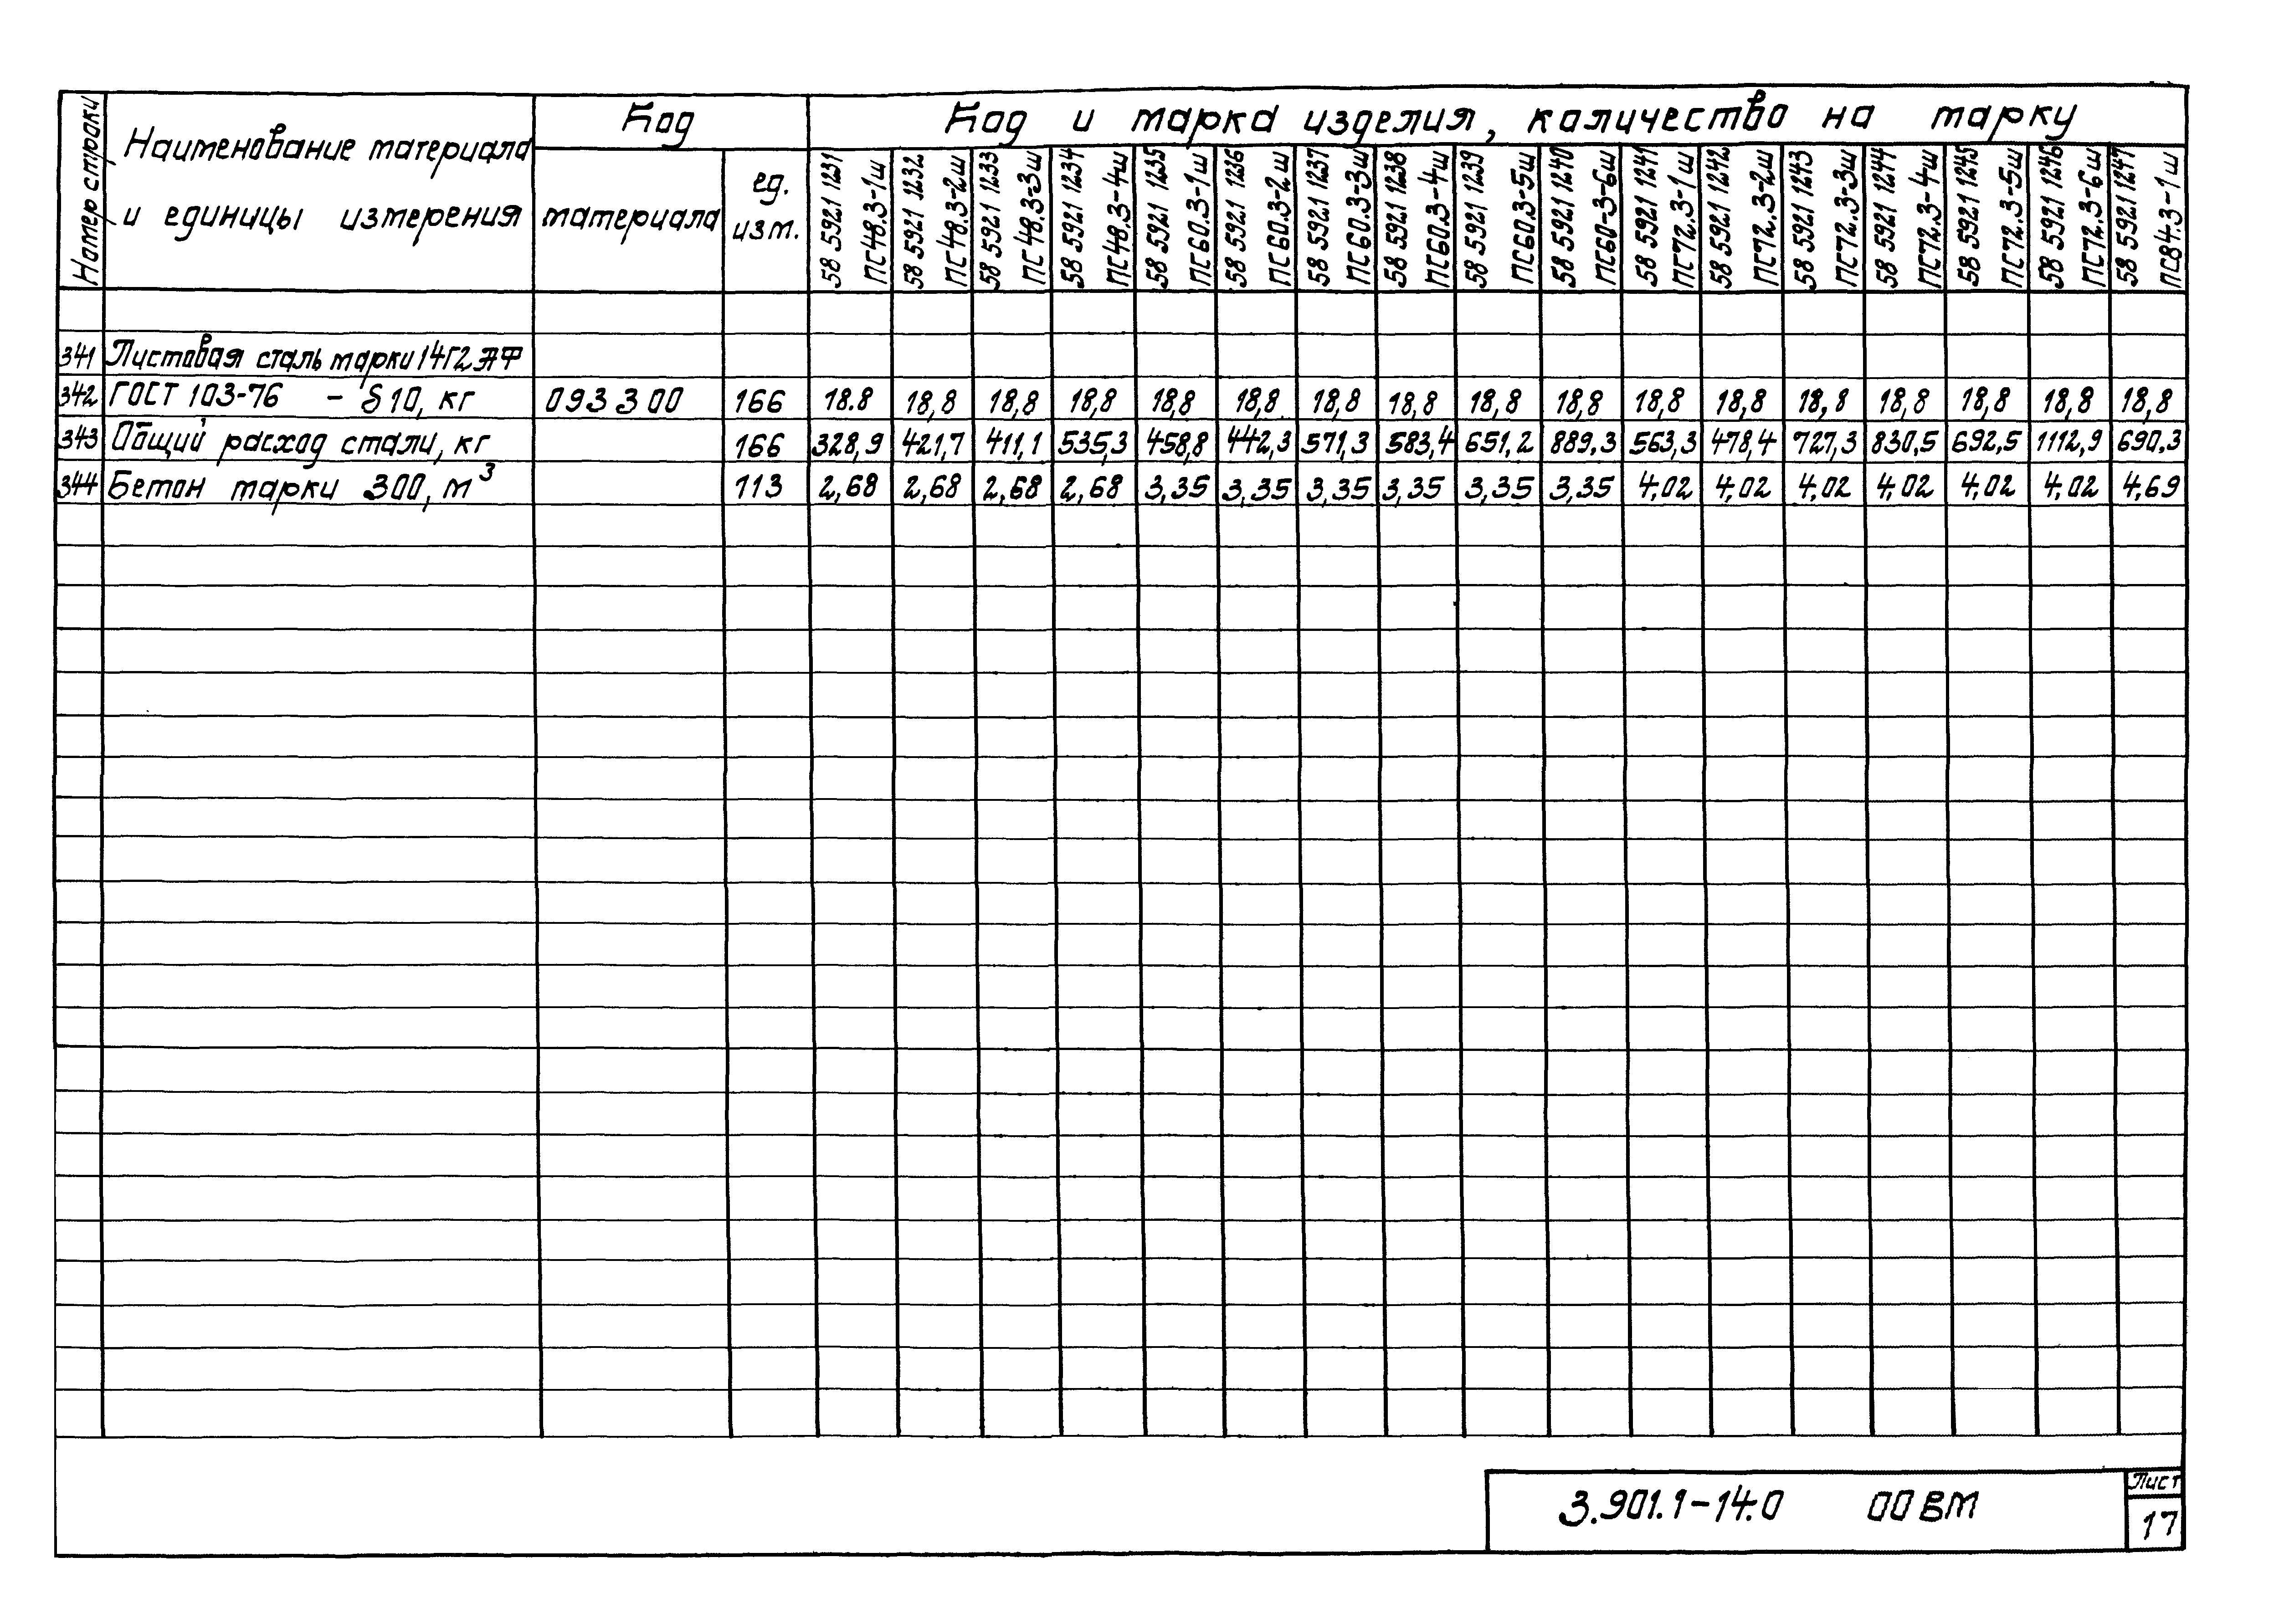 Номер строки
Наименование материала
и единицы измерения
Код
материала
ед.
изм.
Код и марка изделия, количество на марку
58 5921 1231 ПС48.3-1ш
58 5921 1232 ПС48.3-2ш
58 5921 1233 ПС48.3-3ш
58 5921 1234 ПС48.3-4ш
58 5921 1235 ПС60.3-1ш
58 5921 1236 ПС60.3-2ш
58 5921 1237 ПС60.3-3ш
58 5921 1238 ПС60.3-4ш
58 5921 1239 ПС60.3-5ш
58 5921 1240 ПС60-3-6ш
58 5921 1241 ПС72.3-1ш
58 5921 1242 ПС72.3-2ш
58 5921 1243 ПС72.3-3ш
58 5921 1244 ПС72.3-4ш
58 5921 1245 ПС72.3-5ш
58 5921 1246 ПС72.3-6ш
58 5921 1247 ПС84.3-1ш
341 Листовая сталь марки 14Г2АФ
342 ГОСТ 103-76 - δ10, кг 093300 166 18.8 18,8 18,8 18,8 18,8 18,8 18,8 18,8 18,8 18,8 18,8 18,8 18,8 18,8 18,8 18,8 18,8
343 Общий расход стали, кг 166 328,9 421,7 411,1 535,3 458,8 442,3 571,3 583,4 651,2 889,3 563,3 478,4 727,3 830,5 692,5 1112,9 690,3
344 Бетон марки 300, м³ 113 2,68 2,68 2,68 2,68 3,35 3,35 3,35 3,35 3,35 3,35 4,02 4,02 4,02 4,02 4,02 4,02 4,69
3.901.1-14.0 00ВМ
Лист
17